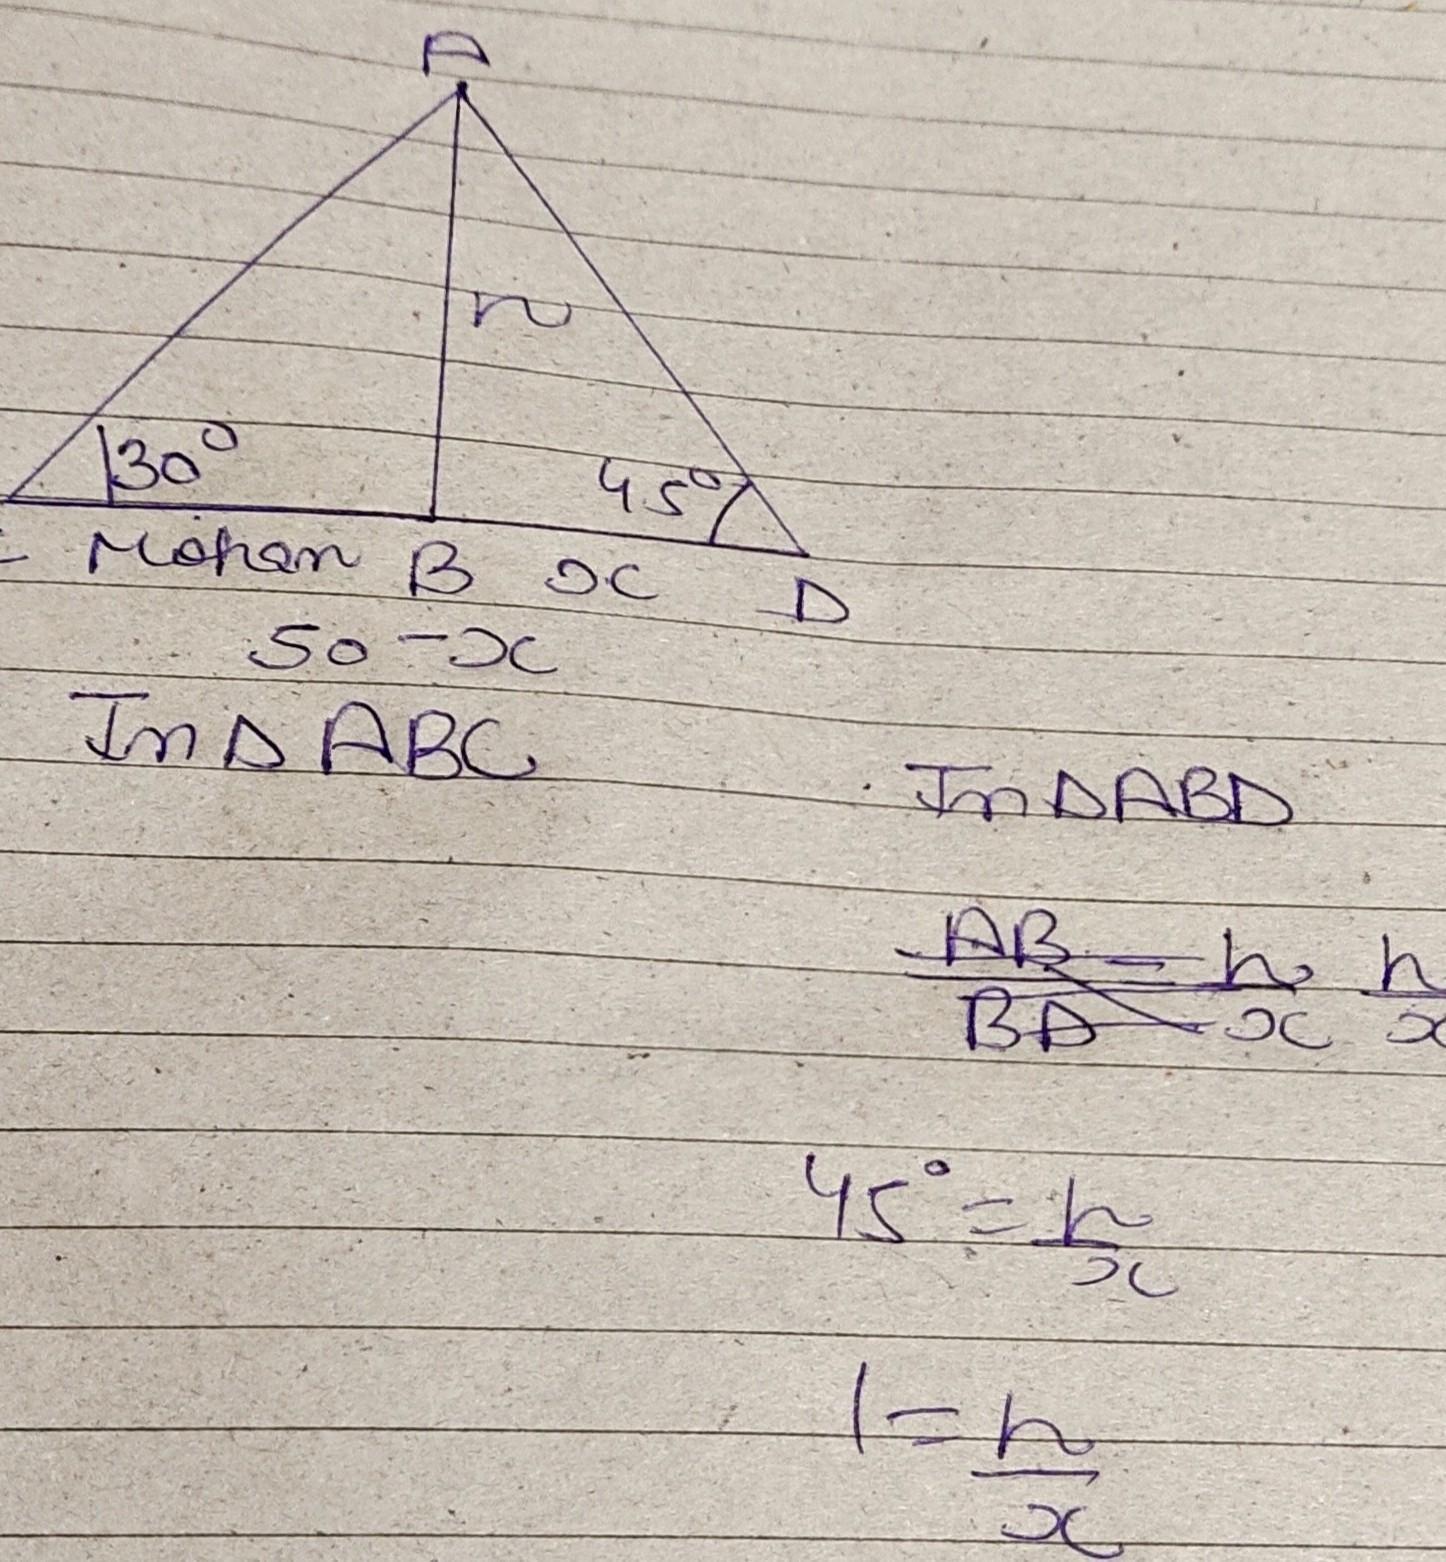 A
h
30° 45°
C Mohan B x D
50-x
In Δ ABC
In Δ ABD
AB = h h
BD x x
45° = h
x
1 = h
x